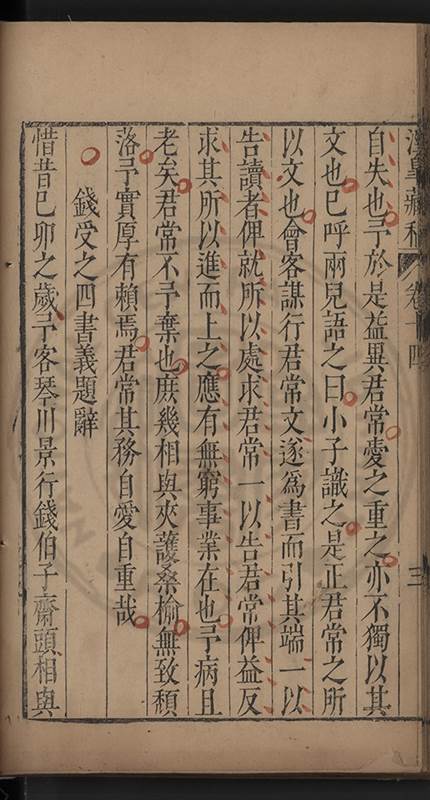 漢皇藏稿 卷十四 三
自失也予於是益異君常愛之重之亦不獨以其
文也已呼兩兒語之曰小子識之是正君常之所
以文也會客謀行君常文遂為書而引其端一以
告讀者俾就所以處求君常一以告君常俾益反
求其所以進而上之應有無窮事業在也予病且
老矣君常不予棄也庶幾相與夾護桑榆無致頹
落予實厚有賴焉君常其務自愛自重哉
錢受之四書義題辭
惜昔己卯之歲予客琴川景行錢伯子齋頭相與